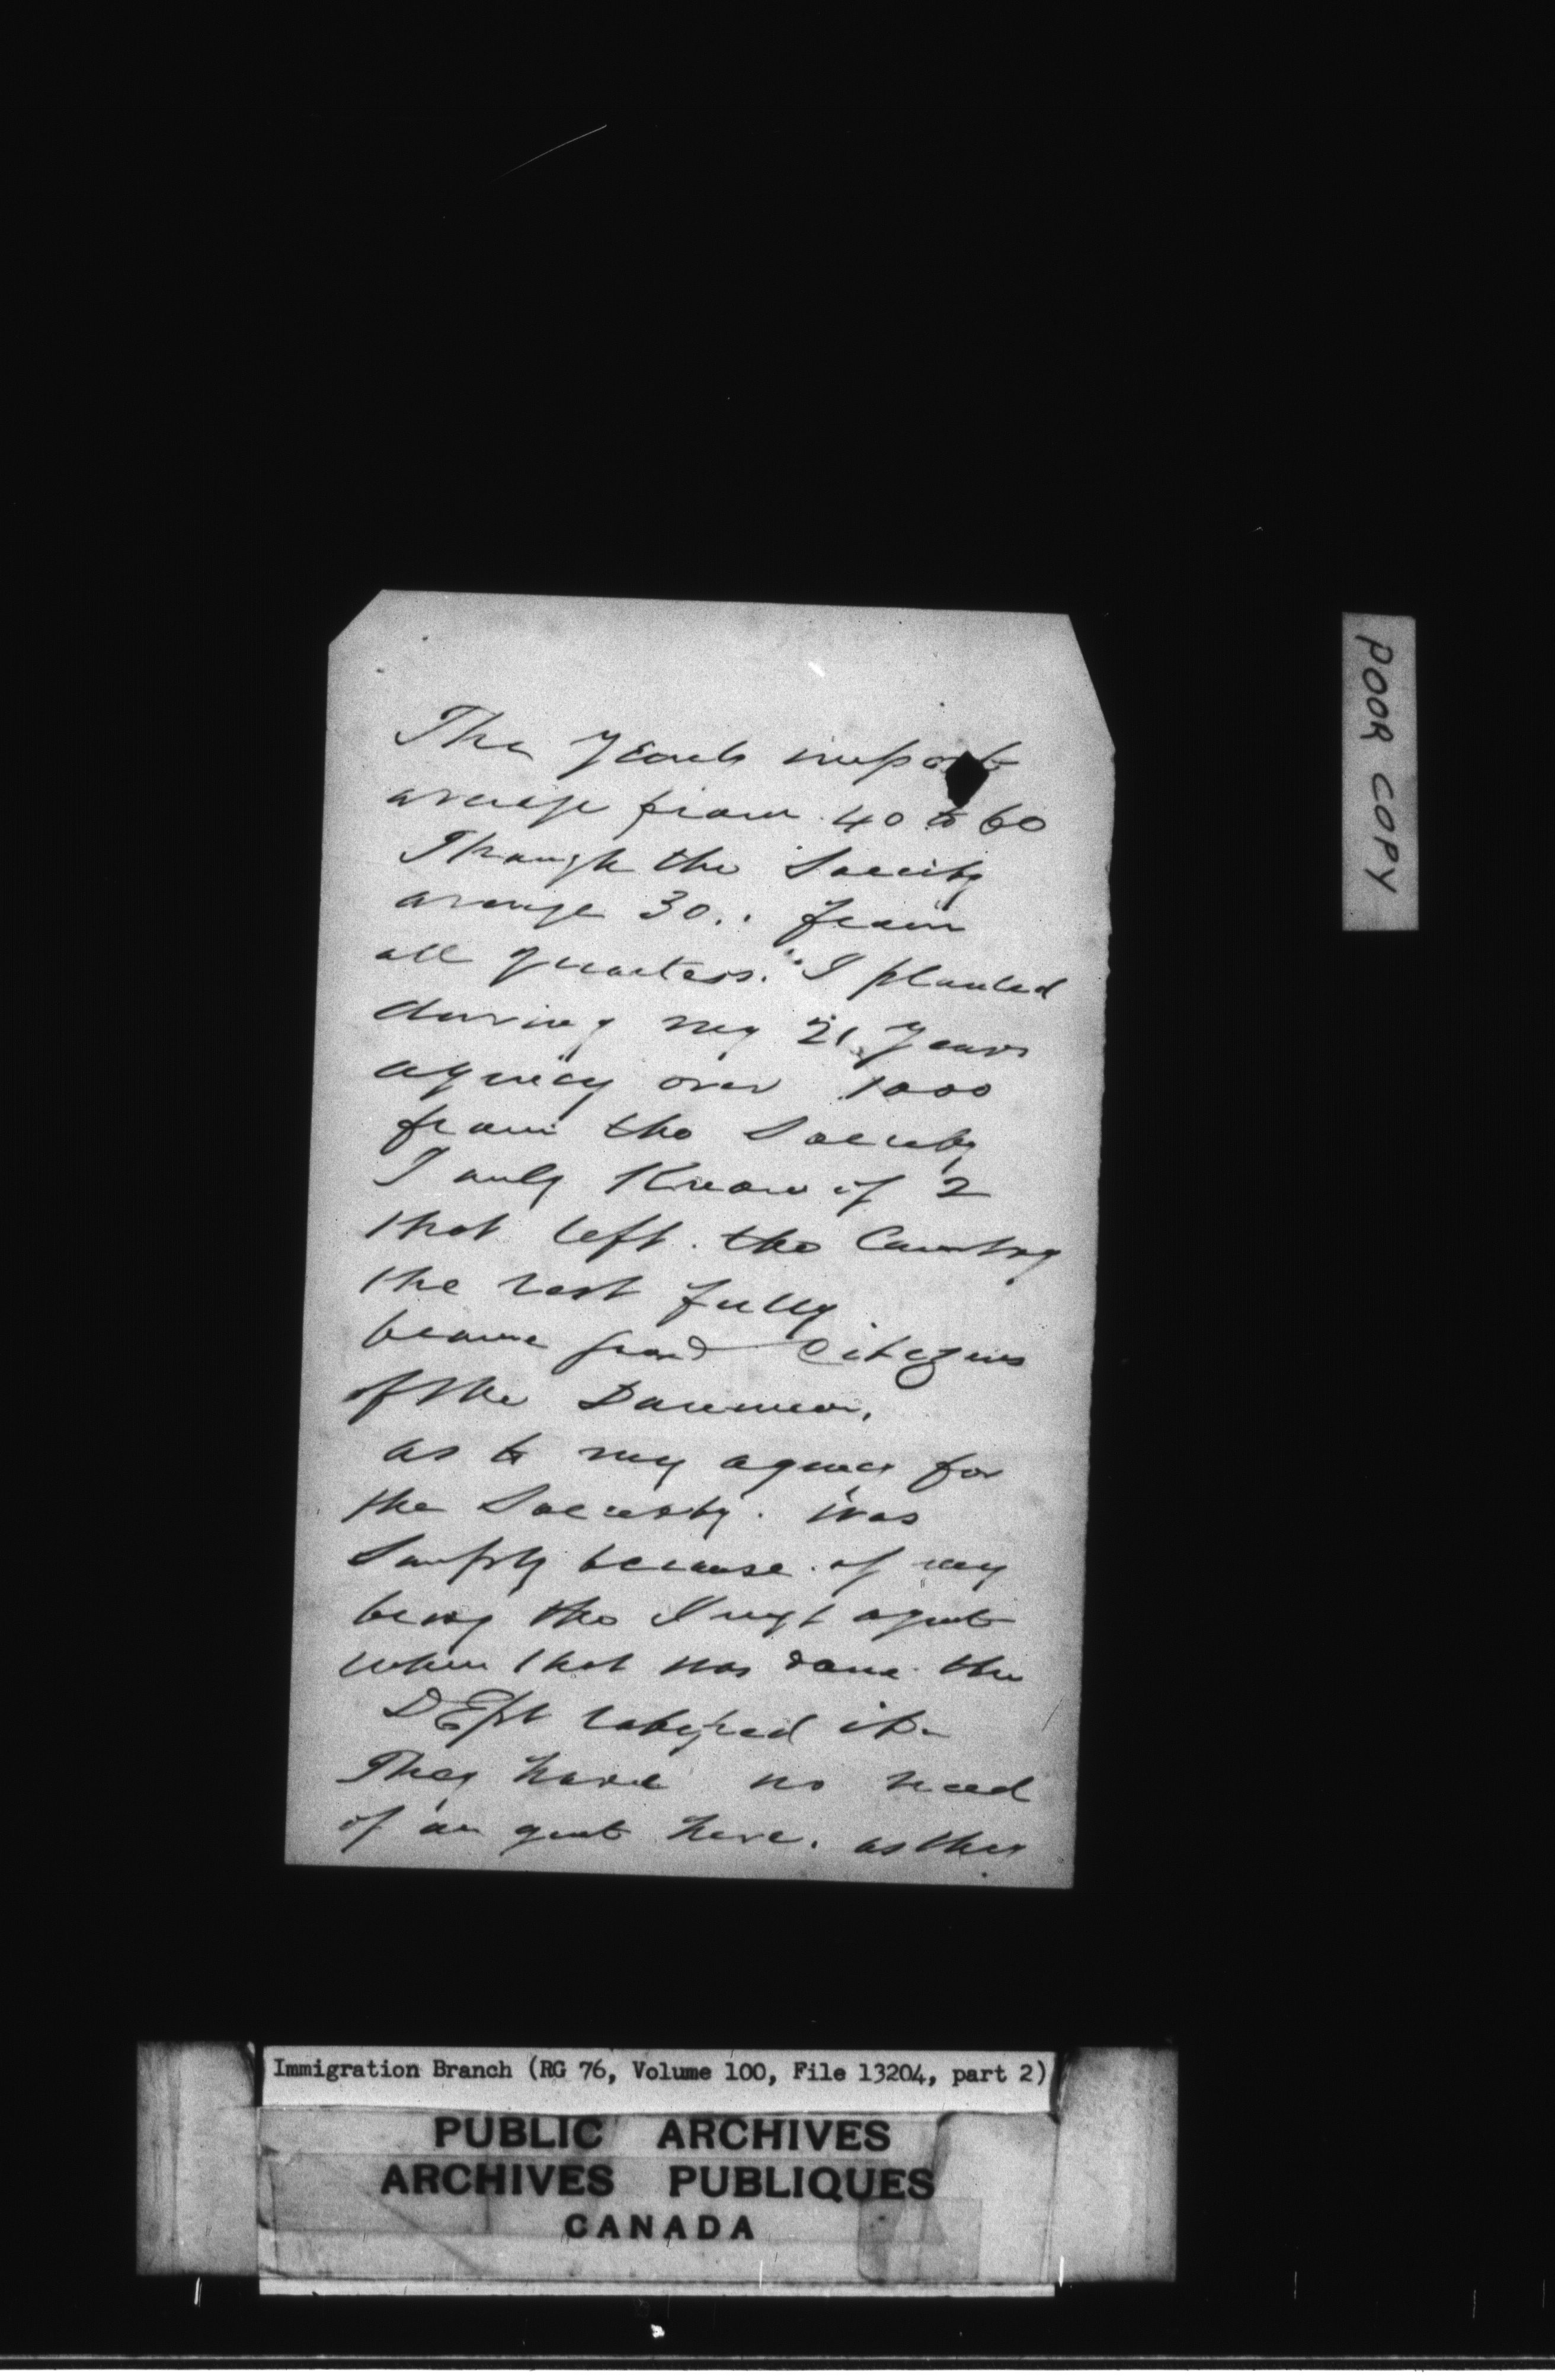 The Yearly import
average from 40 to 60
Through the Society
average 30.. from
all quarters. I planted
during my 21 years
agency over 1000
from the Society
I only Know of 2
that left the Country
the rest fully
became good Citizens
of the Dominion.
as to my agency for
the Society. was
Simply because of my
being the Imgt agent
when that was done the
DEpt it.
They have no need
of an gent here. as they
POOR COPY
Immigration Branch (RG 76, Volume 100, File 13204, part 2)
PUBLIC ARCHIVES
ARCHIVES PUBLIQUES
CANADA